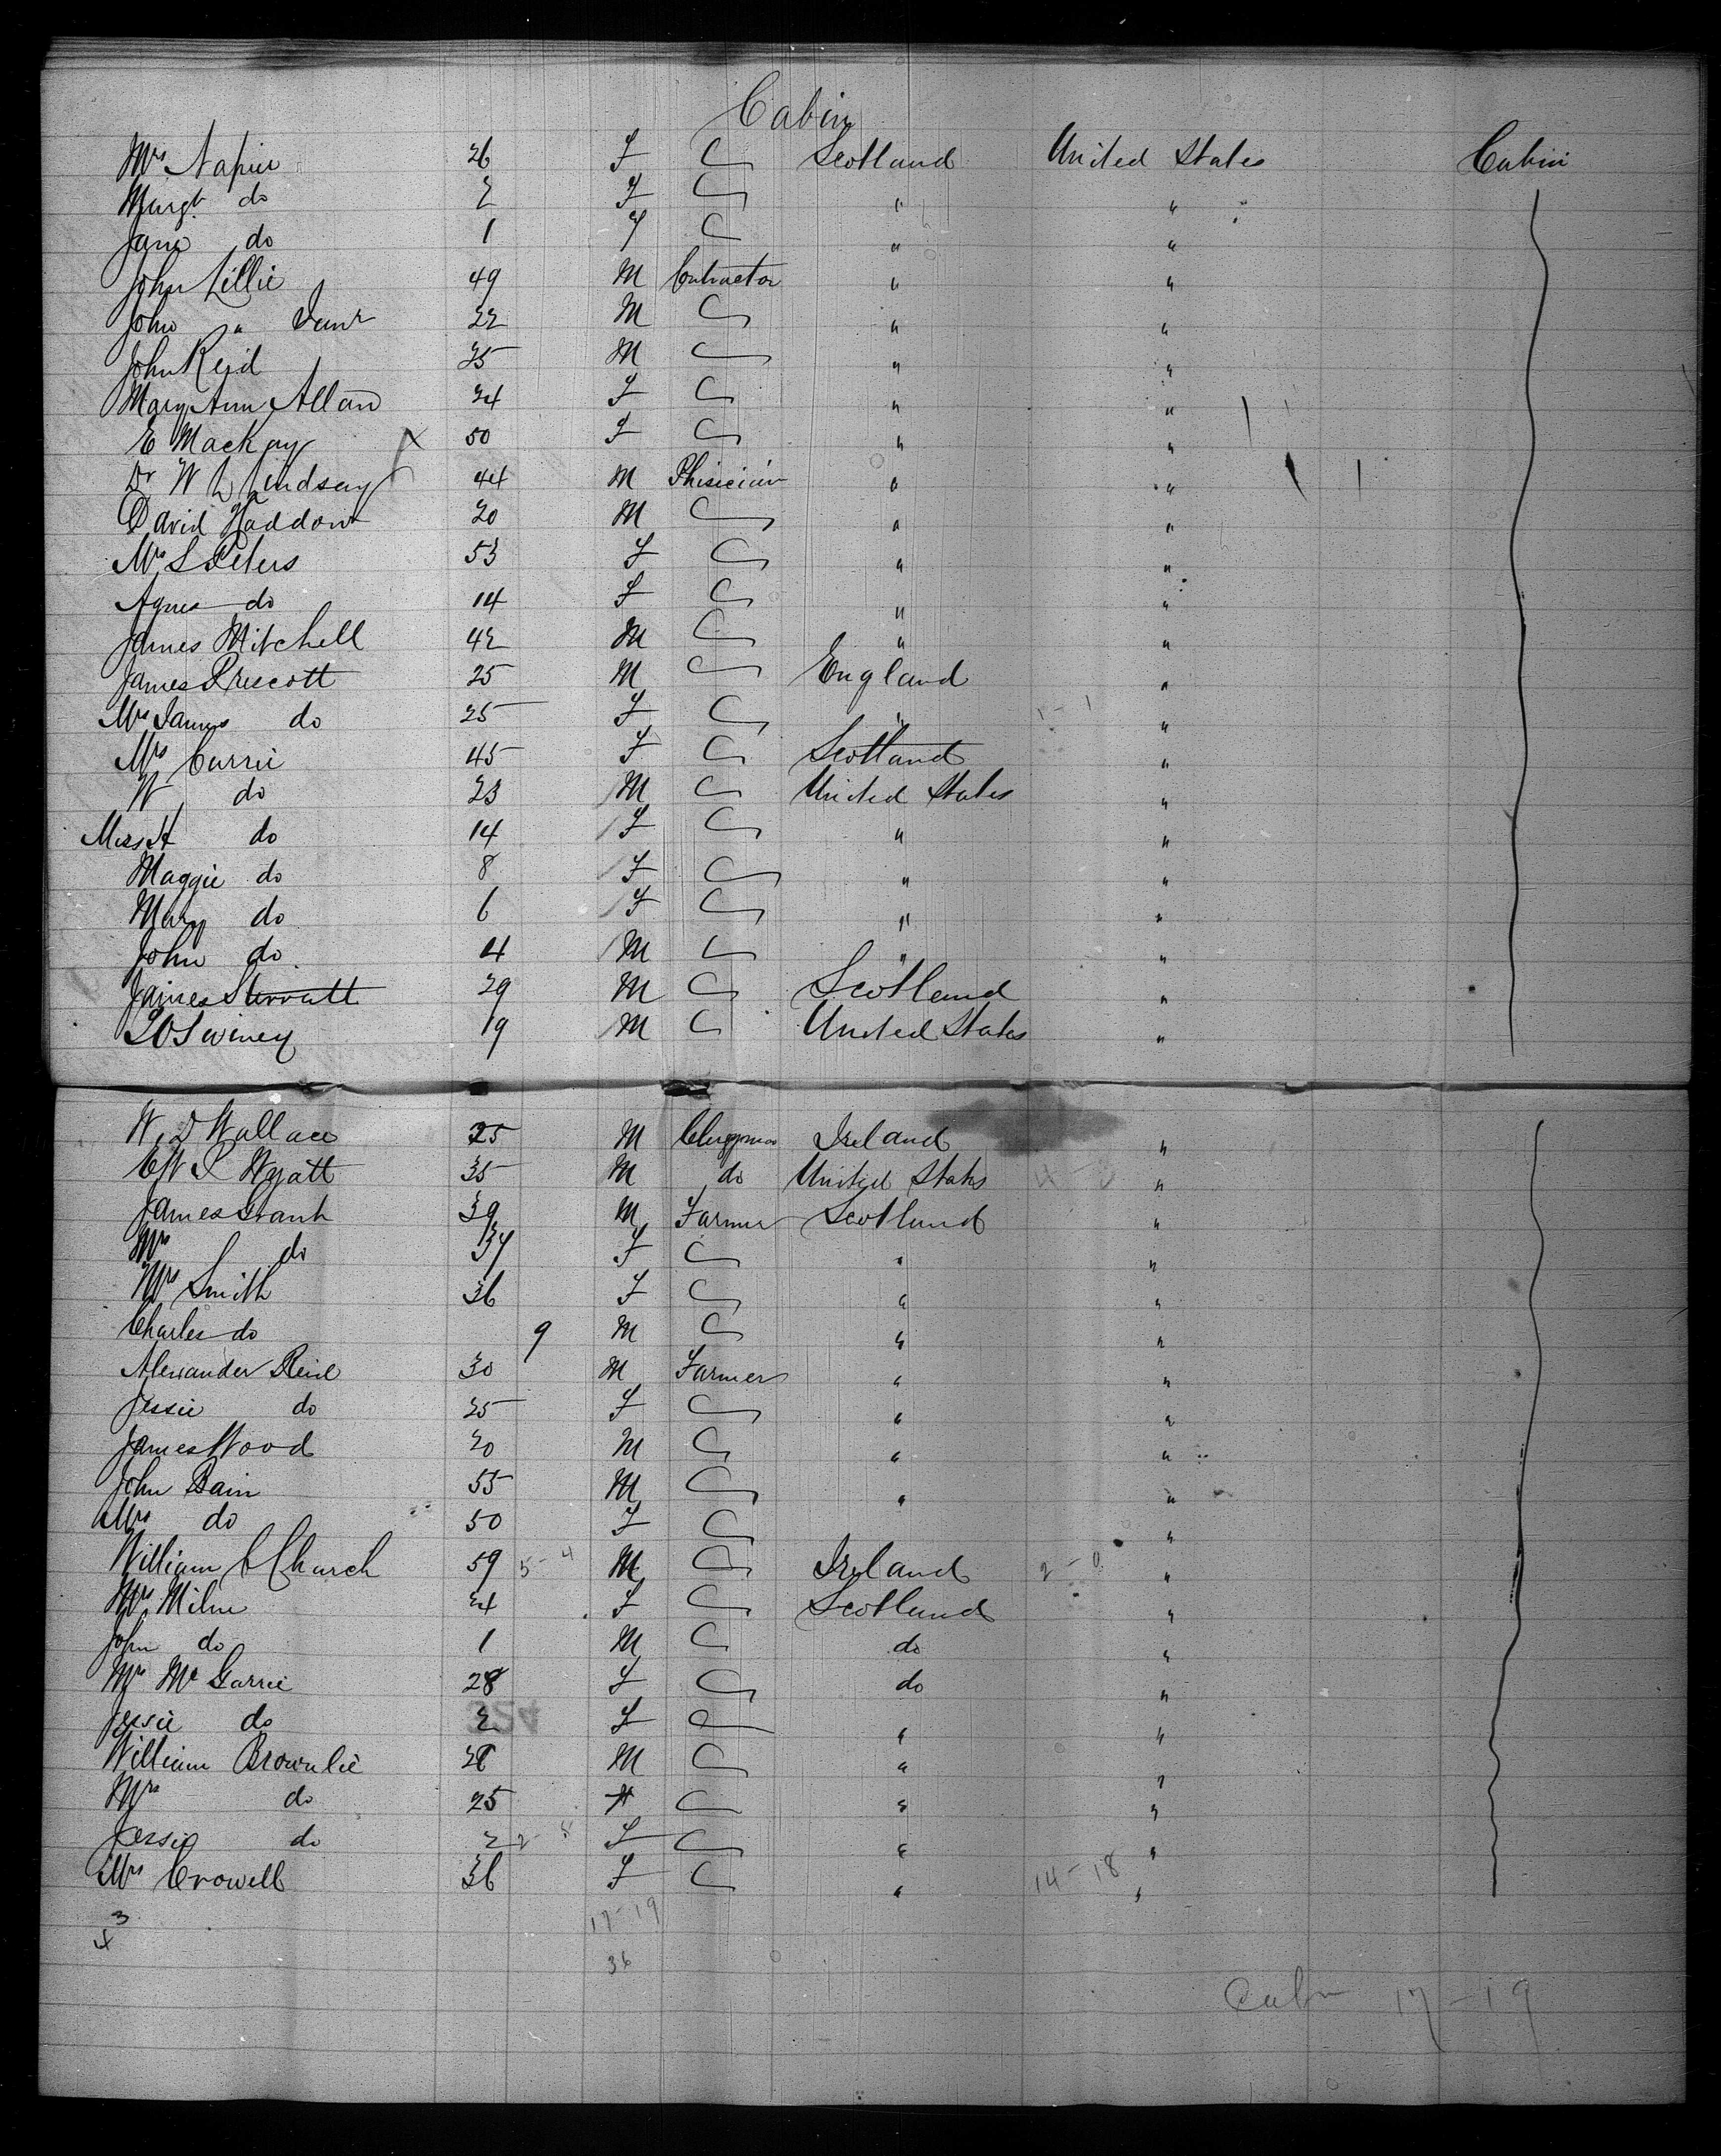 Cabin
Mrs Napier 26 F Scotland United States Cabin
Margt do 2 F " "
Jane do 1 F " "
John Lillie 49 M Contractor " "
John " Junr 22 M " "
John Reid 25 M " "
Mary Ann Allan 24 F " "
E Mackay 50 F " "
Dr W L Lindsay 44 M Phisician " "
David Haddow 20 M " "
Mrs S Peters 53 F " "
Agnes do 14 F " "
James Mitchell 42 M " "
James Prescott 25 M England "
Mrs James do 25 F " "
Mrs Currie 45 F Scotland "
W do 23 M United States "
Miss A do 14 F " "
Maggie do 8 F " "
Mary do 6 F " "
John do 4 M " "
James Sterratt 29 M Scotland "
Swiney 19 M United States "
W D Wallace 25 M Clergyman Ireland "
E W P Wyatt 35 M do United States "
James Grant 39 M Farmer Scotland "
Mrs do 37 F " "
Mrs Smith 36 F " "
Charles do 9 M " "
Alexander Reid 30 M Farmer " "
Jessie do 25 F " "
James Wood 20 M " "
John Bain 55 M " "
Mrs do 50 F "
William C Church 59 5-4 M Ireland 2-0 "
Mrs Milne 24 F Scotland "
John do 1 M do "
Mrs Mc Garrie 28 F do "
Jessie do 2 F " "
William Brownlie M " "
Mrs do 25 " "
Jessie do 2 F " "
Mrs Crowell 36 F " 14-18 "
17-19
36
Cabin 17-19